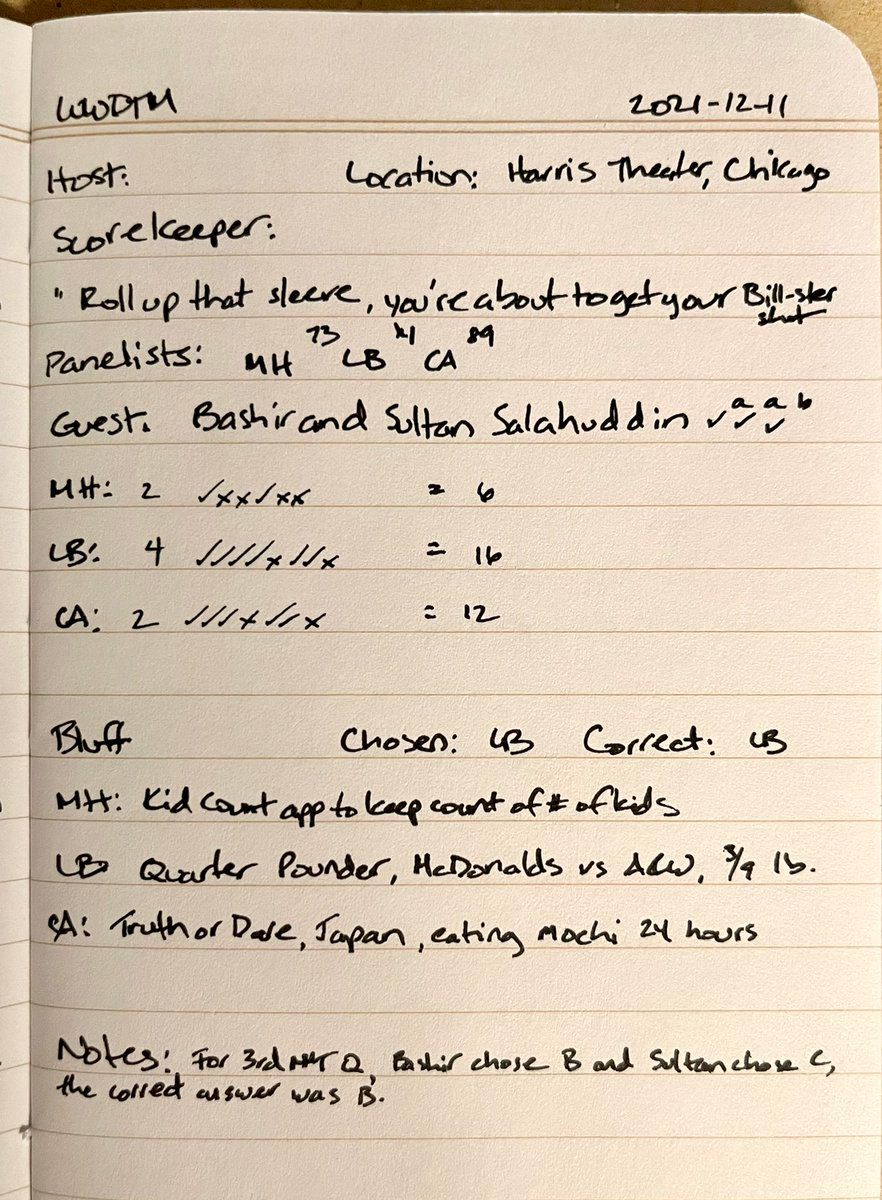 WWDTM 2021-12-11
Host: Location: Harris Theater, Chicago
Scorekeeper:
" Roll up that sleeve, you're about to get your Bill-ster
shot
Panelists: MH 73 LB 41 CA 89
Guest. Bashir and Sultan Salahuddin ✓a ✓a ✓b
MH: 2 ✓xx✓xx = 6
LB: 4 ✓✓✓✓x✓✓x = 16
CA: 2 ✓✓✓x✓✓x = 12
Bluff Chosen: LB Correct: LB
MH: Kid Count app to keep count of # of kids
LB: Quarter Pounder, McDonalds vs A&W, 3/9 lb.
CA: Truth or Dare, Japan, eating mochi 24 hours
Notes: For 3rd NMJ Q, Bashir chose B and Sultan chose C,
the correct answer was B.